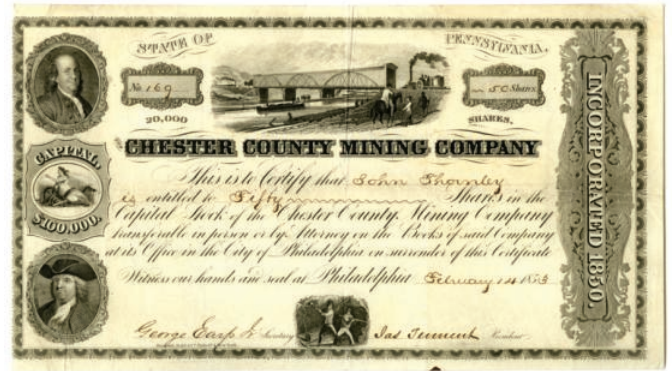 STATE OF PENNSYLVANIA,
No. 169
50 Shares
20,000 SHARES,
CHESTER COUNTY MINING COMPANY
CAPITAL,
$100,000.
INCORPORATED 1850.
This is to Certify that John Thornley
is entitled to Fifty Shares in the
Capital Stock of the Chester County Mining Company
transferable in person or by Attorney on the Books of said Company
at its Office in the City of Philadelphia on surrender of this Certificate
Witness our hands and seal at Philadelphia February 14 1853
George Earp Jr Secretary
Jas Tennent President